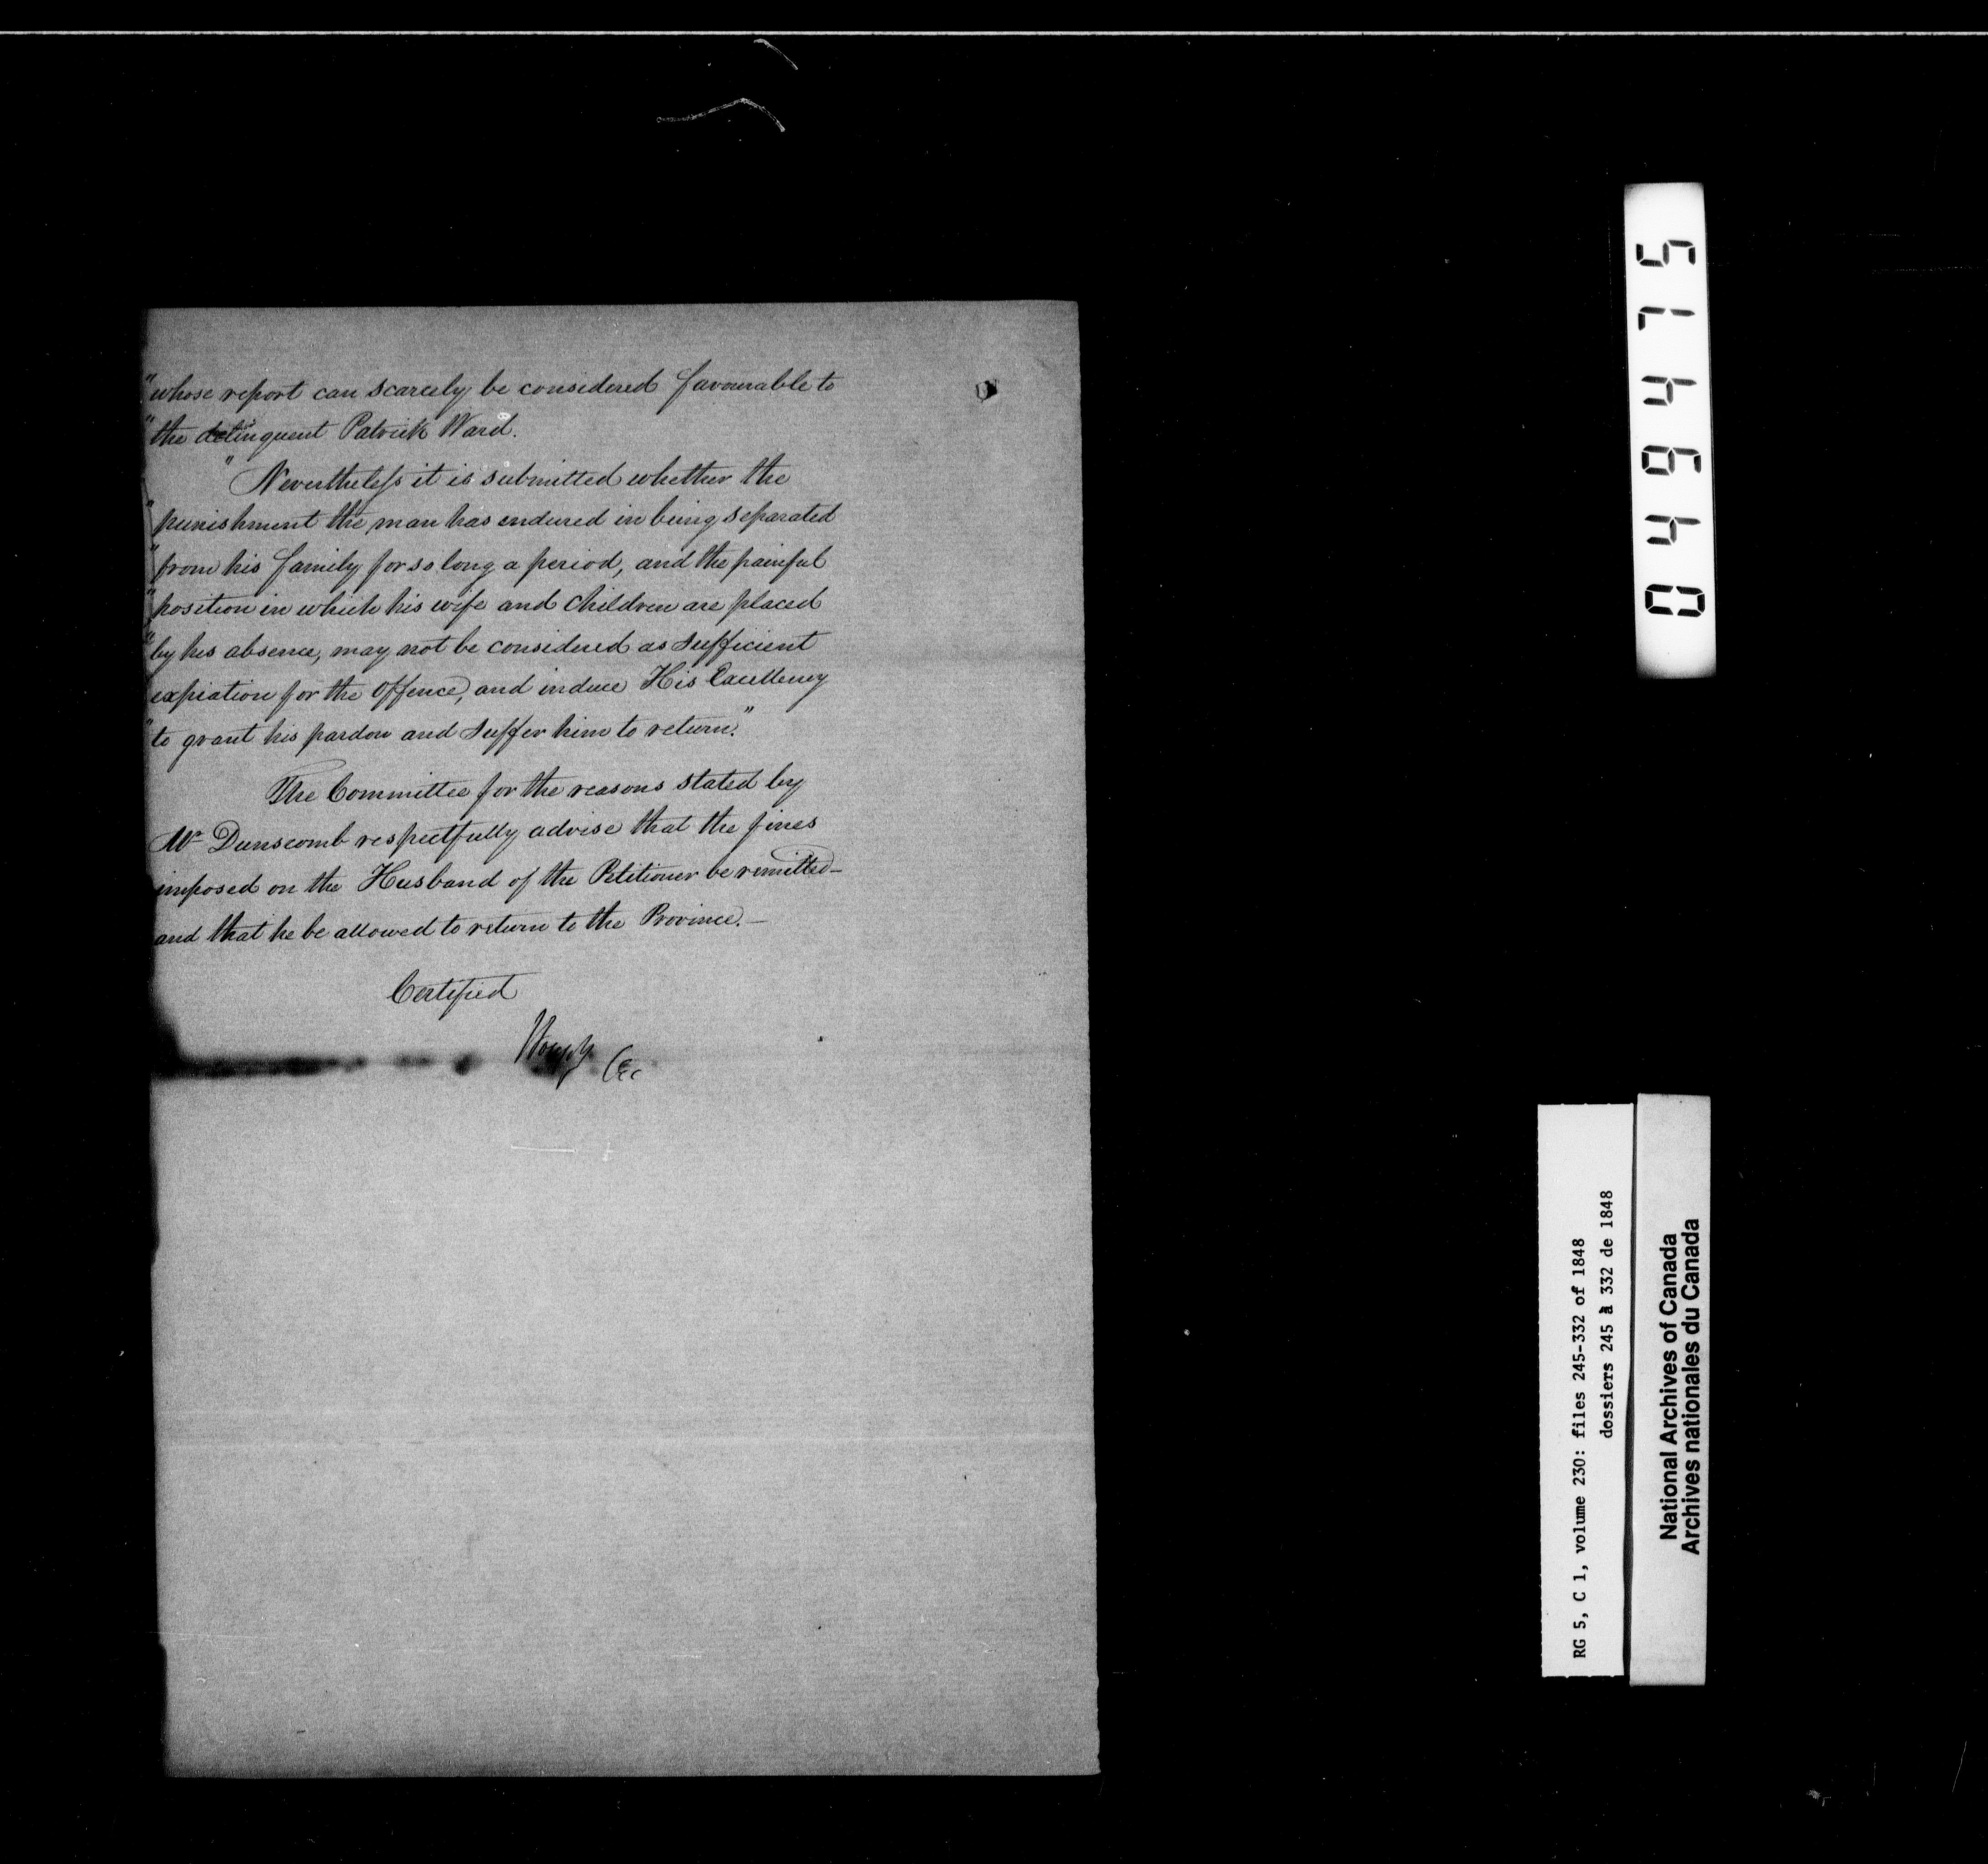 "whose report can scarcely be considered favourable to
"the delinquent Patrick Ward.
"Nevertheless it is submitted whether the
"punishment the man has endured in being separated
"from his family for so long a period, and the painful
"position in which his wife and children are placed
"by his absence, may not be considered as sufficient
expiation for the offence, and induce His Excellency
"to grant his pardon and suffer him to return."
The Committee for the reasons stated by
Mr Dunscomb respectfully advise that the fines
imposed on the Husband of the Petitioner be remitted—
and that he be allowed to return to the Province.—
Certified
044475
RG 5, C 1, volume 230: files 245-332 of 1848
dossiers 245 à 332 de 1848
National Archives of Canada
Archives nationales du Canada